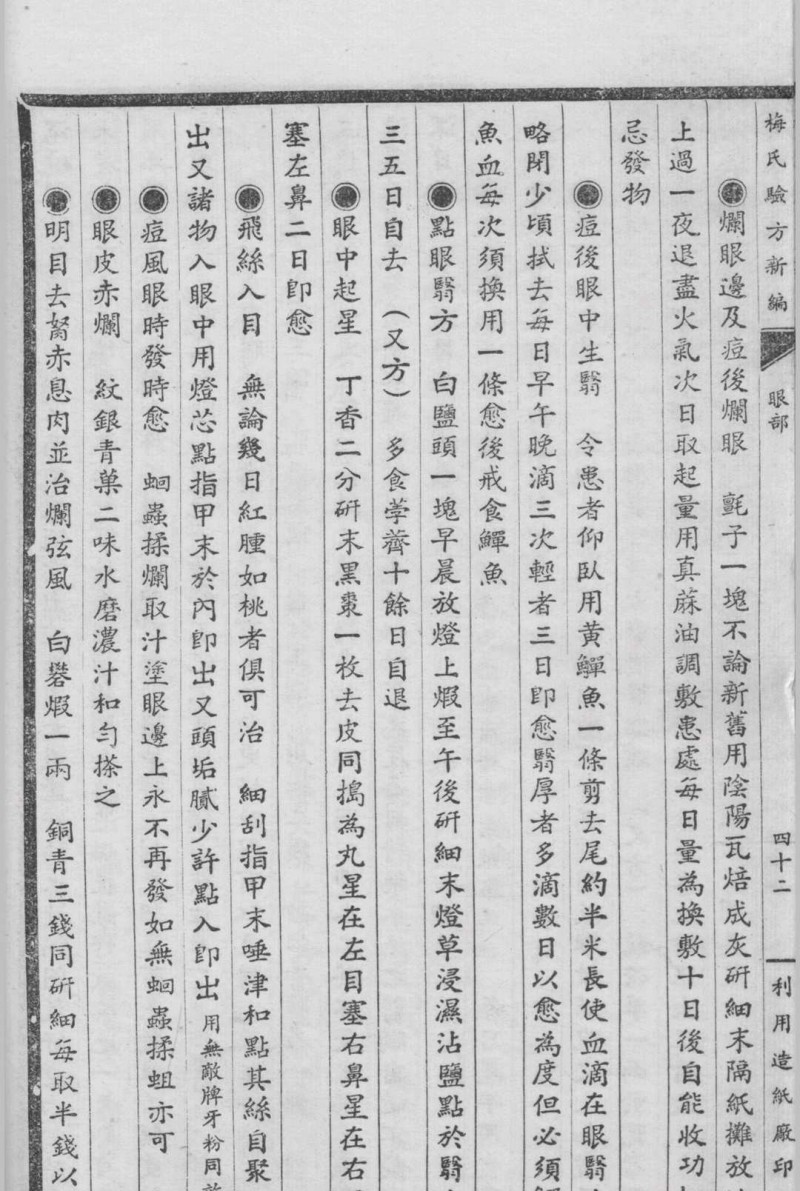 梅氏驗方新編 眼部 四十二 利用造紙廠印
●爛眼邊及痘後爛眼 氈子一塊不論新舊用陰陽瓦焙成灰研細末隔紙攤放
上過一夜退盡火氣次日取起量用真蔴油調敷患處每日量為換敷十日後自能收功
忌發物
●痘後眼中生翳 令患者仰臥用黃鱓魚一條剪去尾約半米長使血滴在眼翳
略閉少頃拭去每日早午晚滴三次輕者三日卽愈翳厚者多滴數日以愈為度但必須
魚血每次須換用一條愈後戒食鱓魚
●點眼翳方 白鹽頭一塊早晨放燈上煆至午後研細末燈草浸濕沾鹽點於翳
三五日自去 (又方) 多食葧薺十餘日自退
●眼中起星 丁香二分研末黑棗一枚去皮同搗為丸星在左目塞右鼻星在右
塞左鼻二日卽愈
●飛絲入目 無論幾日紅腫如桃者俱可治 細刮指甲末唾津和點其絲自聚
出又諸物入眼中用燈芯點指甲末於內卽出又頭垢膩少許點入卽出用無敵牌牙粉同
●痘風眼時發時愈 蛔蟲揉爛取汁塗眼邊上永不再發如無蛔蟲揉蛆亦可
●眼皮赤爛 紋銀青菓二味水磨濃汁和勻搽之
●明目去胬赤息肉並治爛弦風 白礬煆一兩 銅青三錢同研細每取半錢以